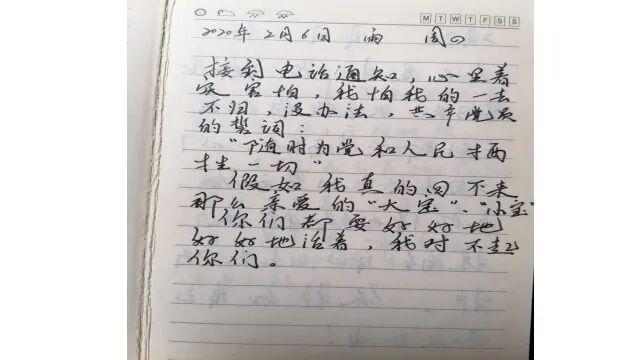 M T W T F S S
2020年 2月6日 雨 周四
接到电话通知，心里着
实害怕，我怕我的一去
不归，没办法，共产党员
的誓词：
“随时为党和人民牺
牲一切”
假如我真的回不来
那么亲爱的“大宝”、“小宝”
你们都要好好地
好好地活着，我对不起
你们。